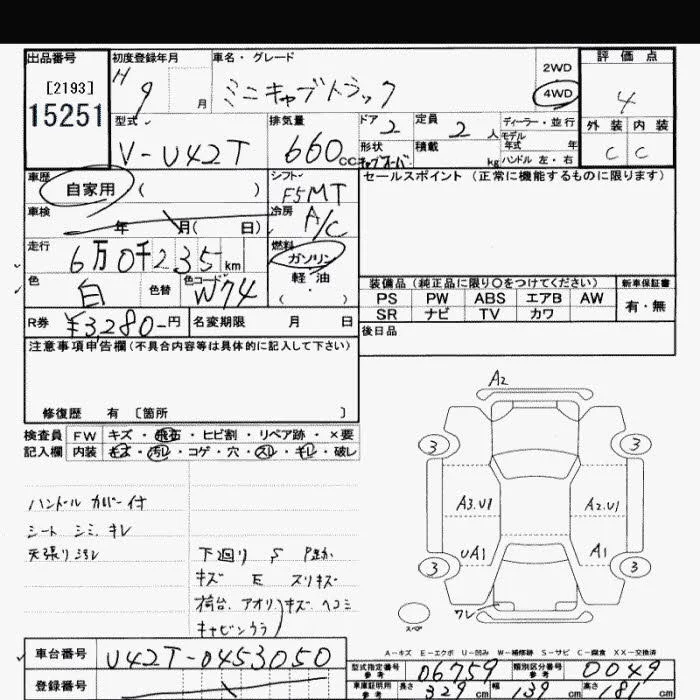 出品番号
[2193]
15251
初度登録年月
H 9 月
車名・グレード
ミニキャブトラック
2WD
4WD
評価点
4
外装 内装
C C
型式
V-U42T
排気量
660 CC
ドア 2
定員 2 人
形状
積載 kg
ディーラー・並行
モデル年式 年
ハンドル 左・右
車歴
自家用 ( )
シフト
F5MT
車検
年 月( 日)
冷房
A/C
走行
6万0千235 km
燃料
ガソリン
軽・油
( ・ )
色
白
色替
色コード
W74
R券 ¥3,280-円
名変期限 月 日
セールスポイント(正常に機能するものに限ります)
装備品(純正品に限り〇をつけてください)
PS PW ABS エアB AW
SR ナビ TV カワ
新車保証書
有・無
後日品
注意事項申告欄(不具合内容等は具体的に記入して下さい)
修復歴 有 〔箇所 〕
検査員 記入欄
FW キズ・飛石・ヒビ割・リペア跡・×要
内装 キズ・汚レ・コゲ・穴・スレ・キレ・破レ
ハンドル カバー付
シート シミ、キレ
天張り汚レ
下廻り S
キズ E スリキズ
荷台、アオリ キズ ヘコミ
キャビンウラ
A2
3 3
A3.U1 A2.U1
UA1 A1
3 3
ワレ
スペア
A-キズ E-エクボ U-凹み W-補修跡 S-サビ C-腐食 XX-交換済
車台番号
U42T-0453050
登録番号
型式指定番号 参考
06759
類別区分番号 参考
0049
車庫証明用 参考
長さ 329 cm 幅 139 cm 高さ 181 cm